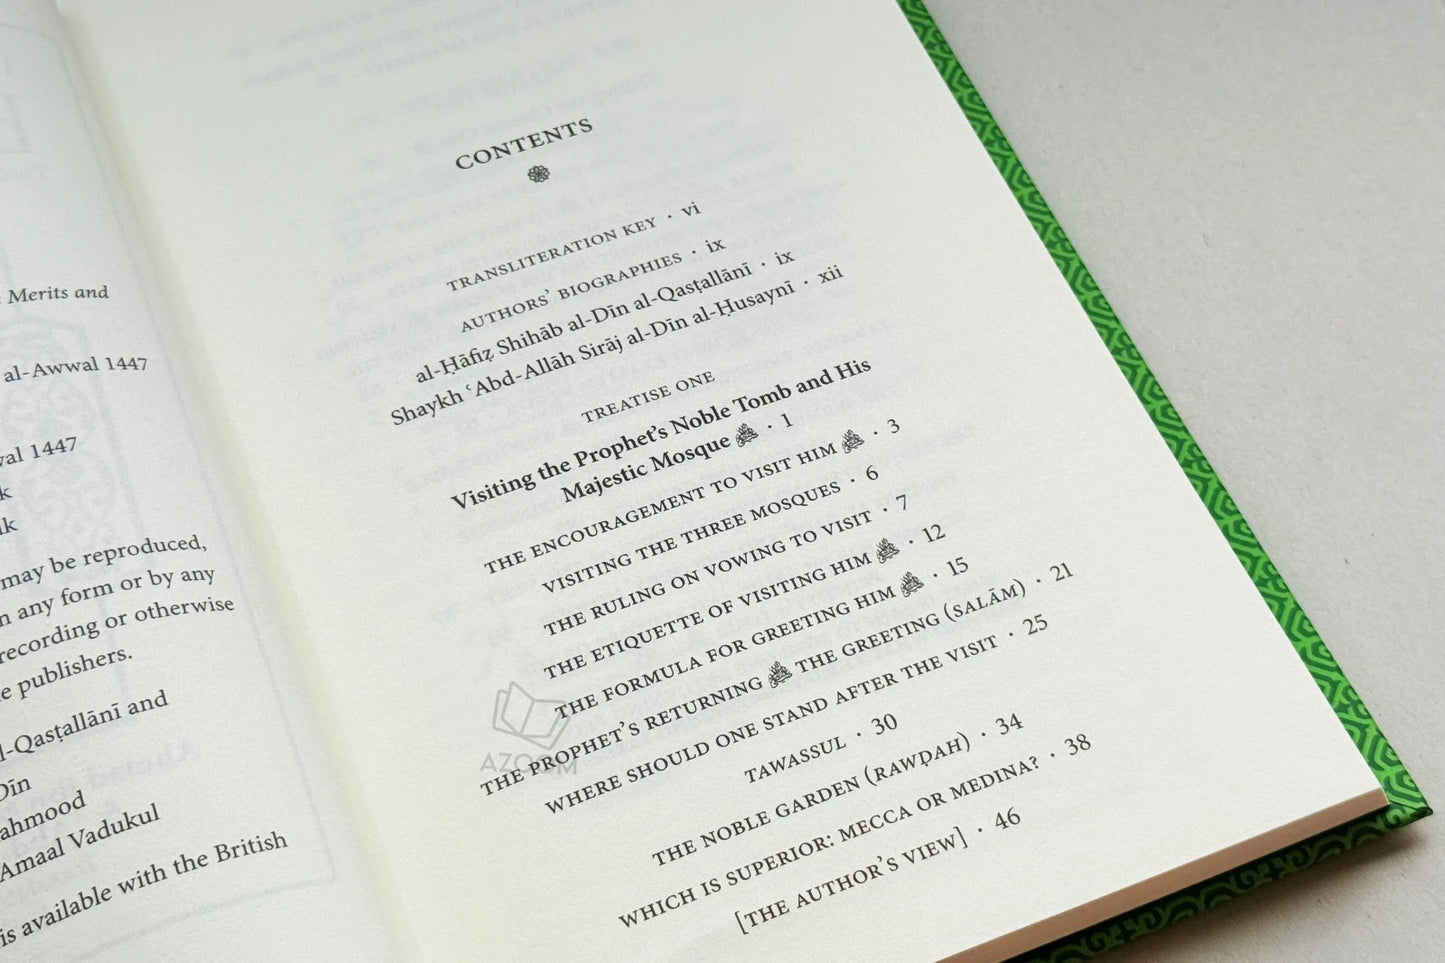 : Merits and
al-Awwal 1447
wal 1447
k
lk
may be reproduced,
n any form or by any
recording or otherwise
e publishers.
l-Qasṭallānī and
Dīn
ahmood
Amaal Vadukul
is available with the British
CONTENTS
TRANSLITERATION KEY · vi
AUTHORS' BIOGRAPHIES · ix
al-Ḥāfiẓ Shihāb al-Dīn al-Qasṭallānī · ix
Shaykh ʿAbd-Allāh Sirāj al-Dīn al-Ḥusaynī · xii
TREATISE ONE
Visiting the Prophet's Noble Tomb and His
Majestic Mosque ﷺ · 1
THE ENCOURAGEMENT TO VISIT HIM ﷺ · 3
VISITING THE THREE MOSQUES · 6
THE RULING ON VOWING TO VISIT · 7
THE ETIQUETTE OF VISITING HIM ﷺ · 12
THE FORMULA FOR GREETING HIM ﷺ · 15
THE PROPHET'S RETURNING ﷺ THE GREETING (SALĀM) · 21
WHERE SHOULD ONE STAND AFTER THE VISIT · 25
TAWASSUL · 30
THE NOBLE GARDEN (RAWḌAH) · 34
WHICH IS SUPERIOR: MECCA OR MEDINA? · 38
[THE AUTHOR'S VIEW] · 46
AZOOM